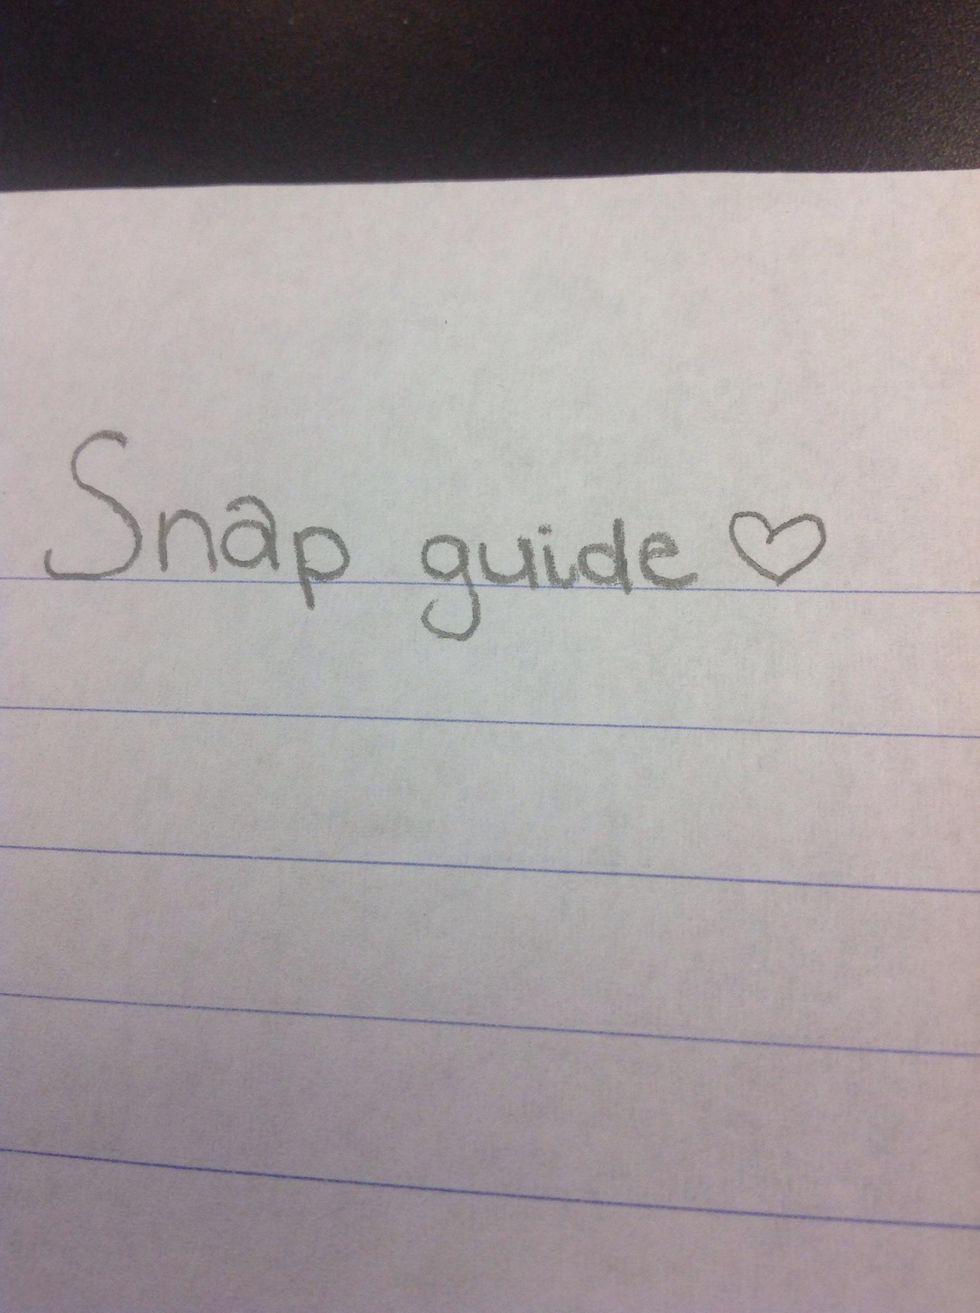 Snap guide ♡